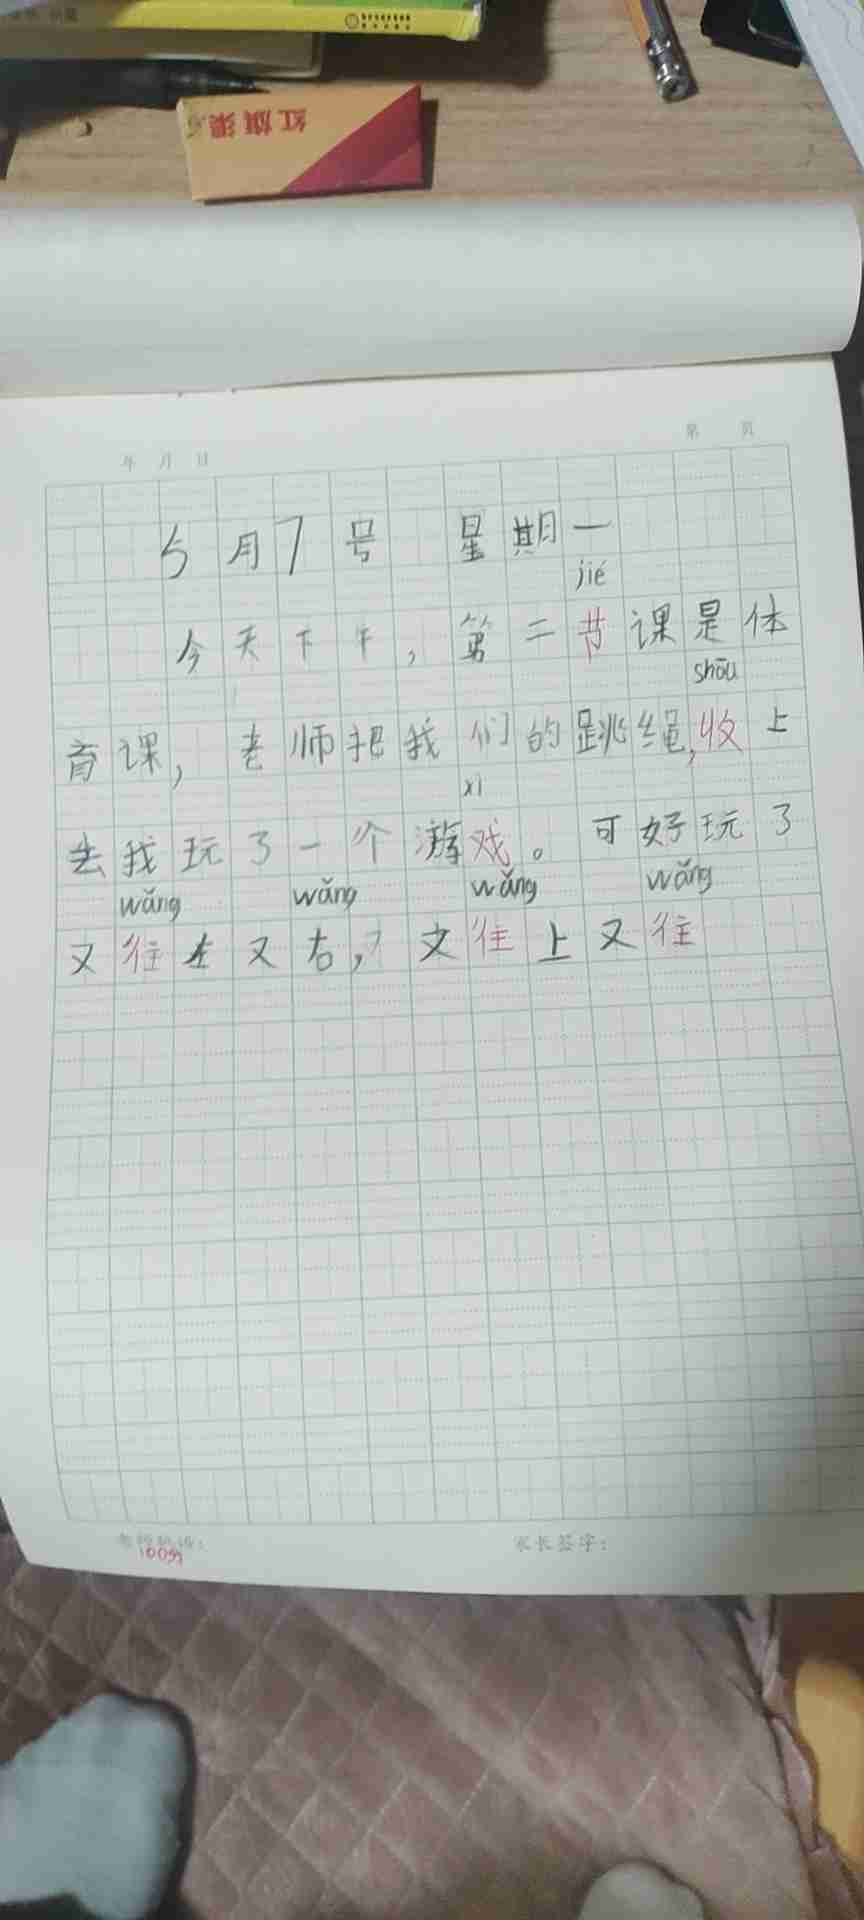 红旗渠
年 月 日
第 页
5月7号 星期一
jié
今天下午,第二节课是体
shōu
育课,老师把我们的跳绳,收上
xì
去我玩了一个游戏。可好玩了
wǎng wǎng wǎng wǎng
又往左又右,文往上又往
老师批语:
100分
家长签字: